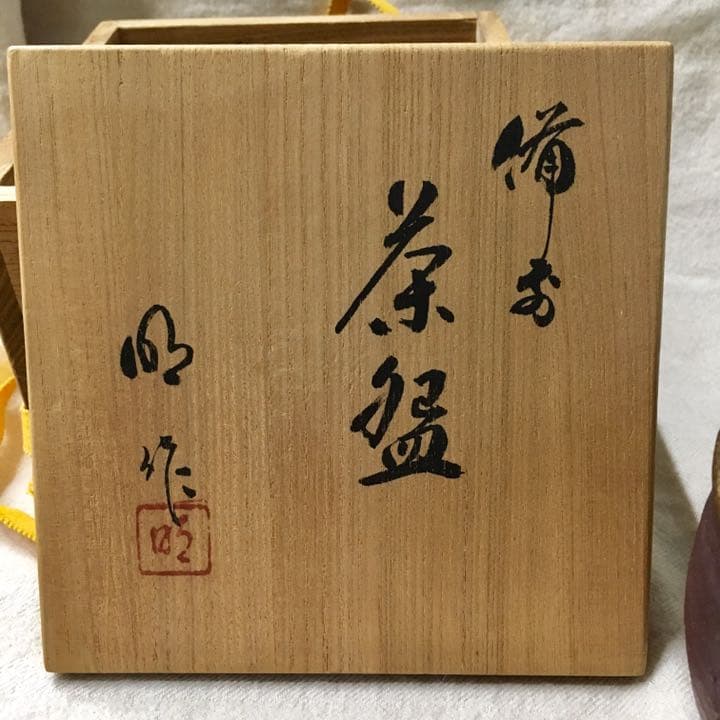 備前
茶盌
明作
明